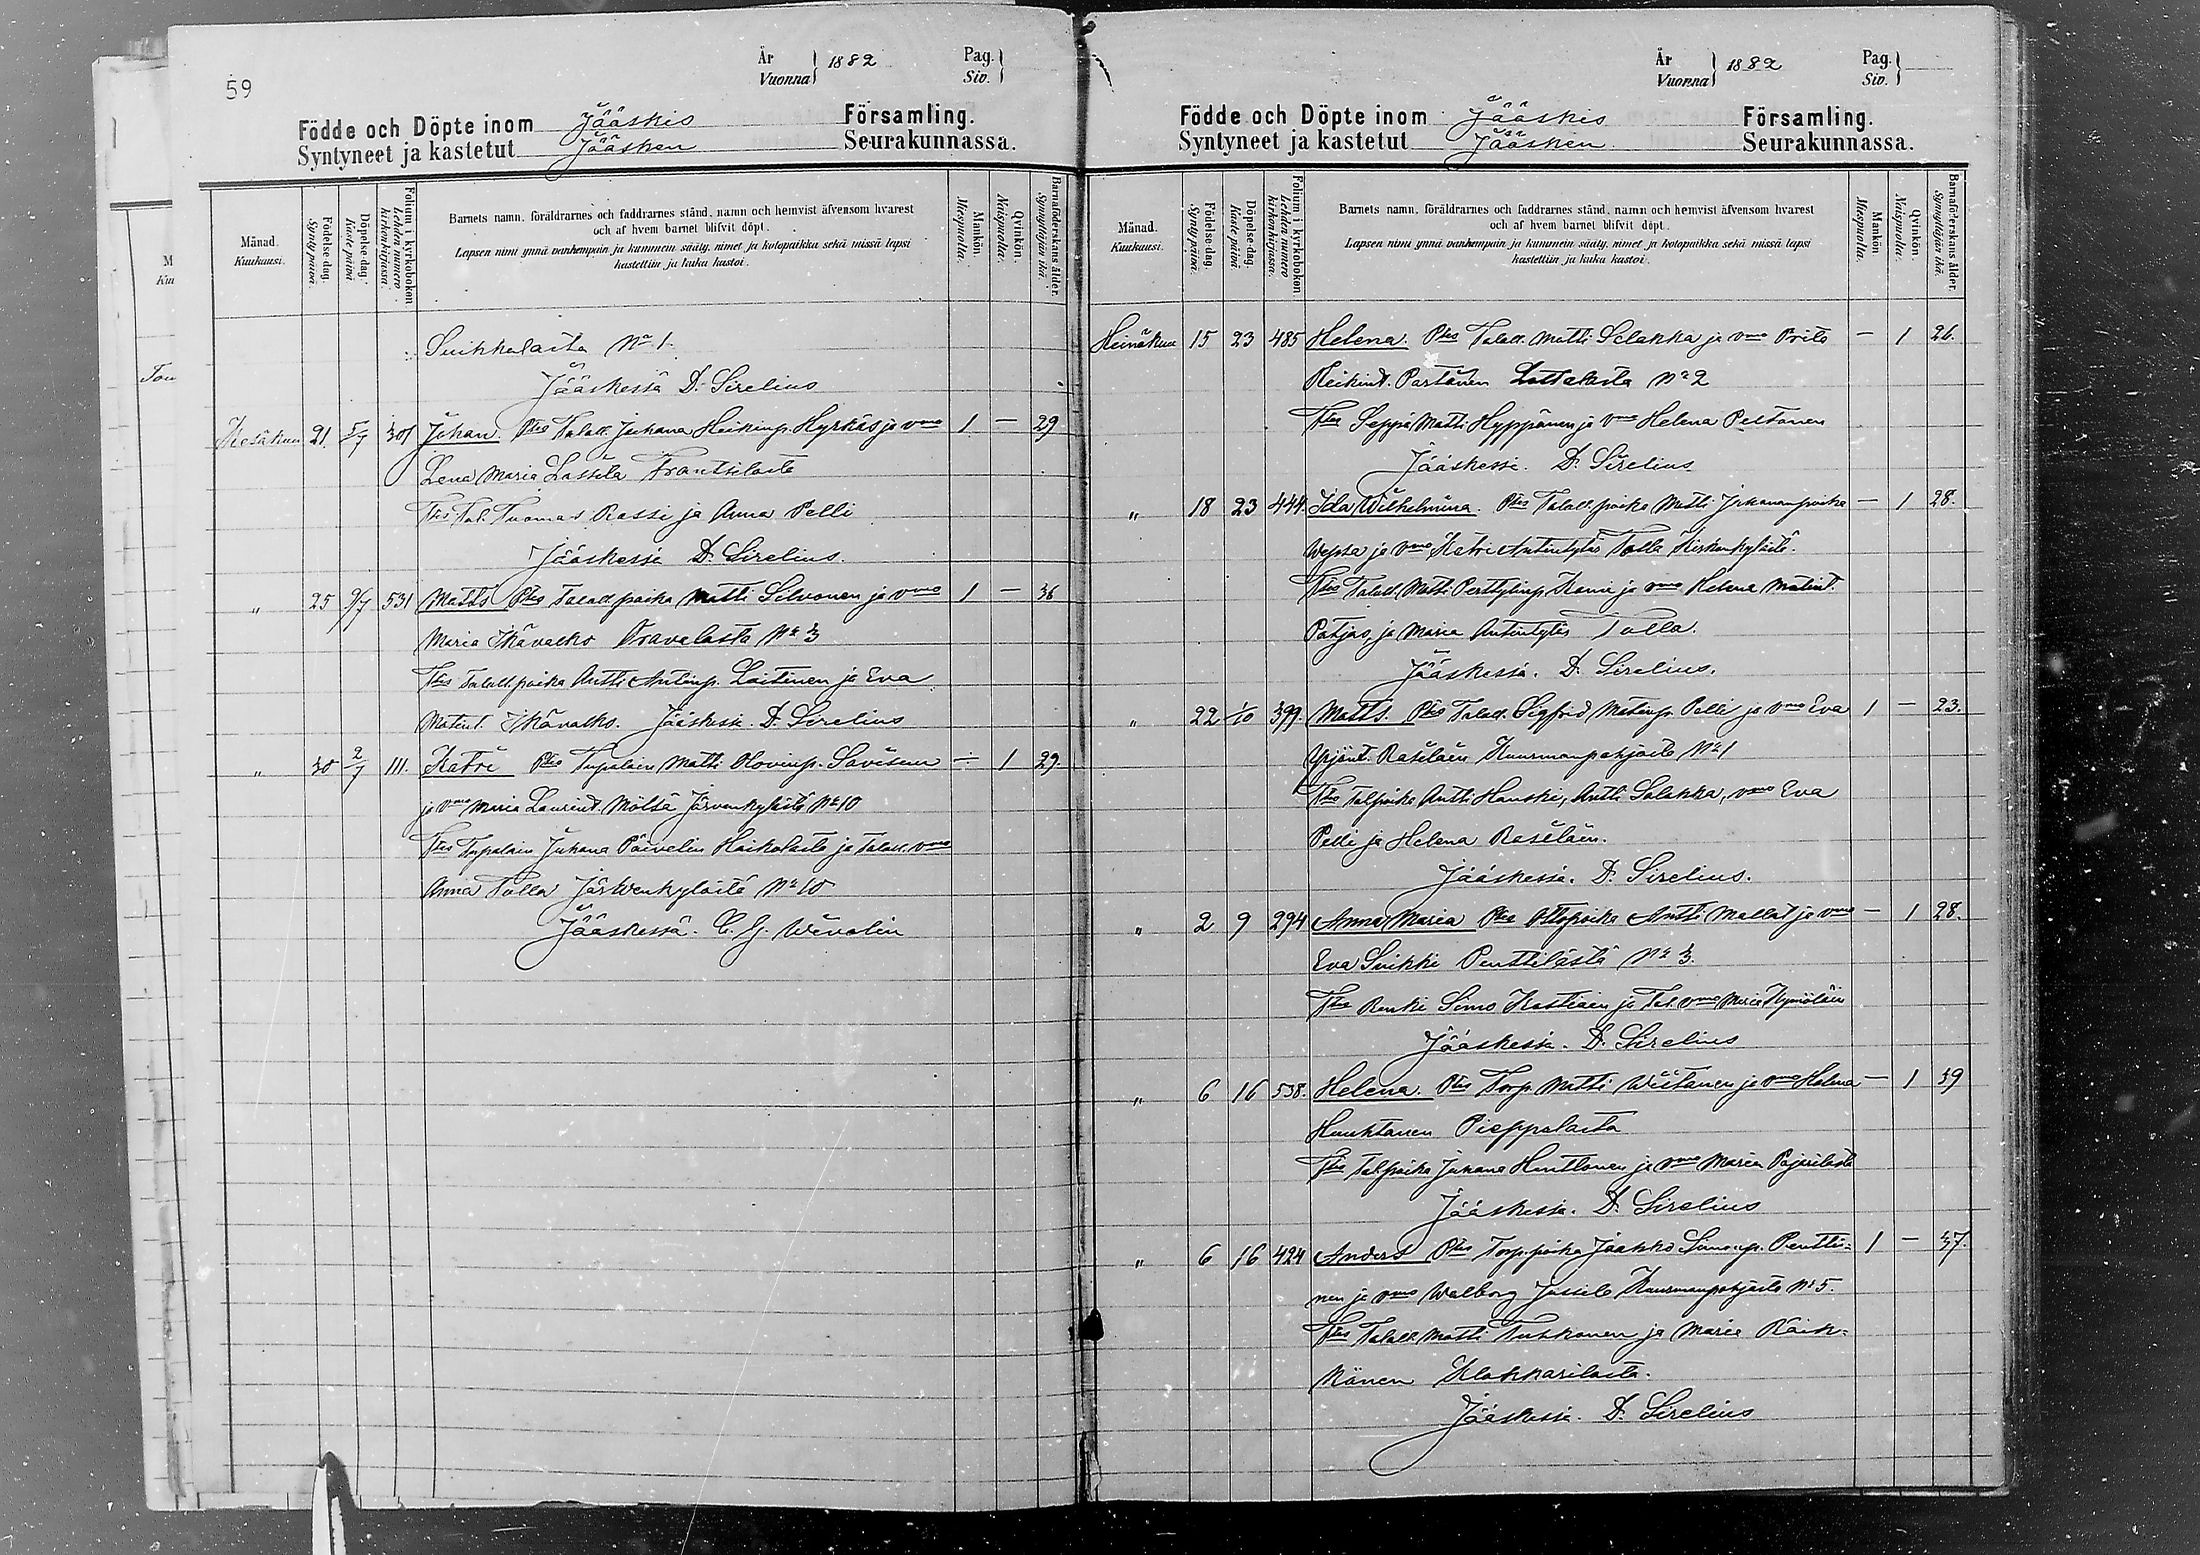 59
År Vuonna } 1882 Pag. Siv. }
Födde och Döpte inom Jääskis Församling.
Syntyneet ja kastetut Jääsken Seurakunnassa.
Månad. Kuukausi.
Födelse-dag. Syntypäivä.
Döpelse-dag. Kastepäivä.
Folium i kyrkoboken Lehden numero kirkonkirjassa.
Barnets namn, föräldrarnes och faddrarnes stånd, namn och hemvist äfvensom hvarest
och af hvem barnet blifvit döpt.
Lapsen nimi ynnä vanhempain ja kummein sääty, nimet ja kotopaikka sekä missä lapsi
kastettiin ja kuka kastoi.
Mankön. Miespuolia.
Qvinkön. Naispuolia.
Barnaföderskans ålder. Synnyttäjän ikä.
Suikkalasta No 1.
Jääskessä D. Sirelius
Kesäkuu 21 5/7 301 Johan Ptes Talall. Juhana Heikinp. Hyrkäs ja vmo 1 — 29
Lena Maria Lassila Frantsilasta
Ttes Tal. Tuomas Rassi ja Anna Pelli
Jääskessä D. Sirelius.
„ 25 9/7 531 Matts Ptes Talall. poika Matti Silvonen ja vmo 1 — 36
Maria Ikävalko Pravalasta No 3
Ttes Talall. poika Antti Antinp. Laitinen ja Eva
Matint. Ikävalko. Jääskessä D. Sirelius
„ 30 2/7 111. Katri Ptes Tupalain Matti Olovinp. Savisuu — 1 29.
ja vmo Maria Laurint. Mölsä Järvenkylästä No 10
Ttes Tupalain Juhana Päivelin Haikalasta ja Talall. vmo
Anna Talla Järvenkylästä No 10
Jääskessä. C. G. Wevolin
År Vuonna } 1882 Pag. Siv. }
Födde och Döpte inom Jääskis Församling.
Syntyneet ja kastetut Jääsken Seurakunnassa.
Månad. Kuukausi.
Födelse-dag. Syntypäivä.
Döpelse-dag. Kastepäivä.
Folium i kyrkoboken Lehden numero kirkonkirjassa.
Barnets namn, föräldrarnes och faddrarnes stånd, namn och hemvist äfvensom hvarest
och af hvem barnet blifvit döpt.
Lapsen nimi ynnä vanhempain ja kummein sääty, nimet ja kotopaikka sekä missä lapsi
kastettiin ja kuka kastoi.
Mankön. Miespuolia.
Qvinkön. Naispuolia.
Barnaföderskans ålder. Synnyttäjän ikä.
Heinäkuu 15 23 485 Helena. Ptes Talall. Matti Selakka ja vmo Prita — 1 26.
Heikint. Partanen Lottalasta No 2
Ttes Seppä Matti Hyppänen ja vmo Helena Peltonen
Jääskessä. D. Sirelius
„ 18 23 444. Ida Wilhelmina. Ptes Talall. poika Matti Juhananpoika — 1 28.
Wepsä ja vmo Katri Antintytär Talla Kirkonkylästä.
Ttes Talall. Matti Perttylinp. Kanni ja vmo Helena Matint.
Pohjas, ja Maria Antintytär Talla.
Jääskessä. D. Sirelius.
„ 22 1/10 399. Matts. Ptes Talall. Sigfrid Matinp. Pelli ja vmo Eva 1 — 23.
Yrjänt. Räsäläin Kuurmanpohjasta No 1
Ttes Tal. poika Antti Hanski, Antti Salakka, vmo Eva
Pelli ja Helena Räsäläin.
Jääskessä. D. Sirelius.
„ 2 9 294 Anna Maria Ptes Ottopoika Antti Mallat ja vmo — 1 28.
Eva Suikki Penttilästä No 3.
Ttes Renki Simo Kostiain ja Tal. vmo Maria Hymöläin
Jääskessä. D. Sirelius
„ 6 16 538. Helena. Ptes Torp. Matti Wiitanen ja vmo Helena — 1 39
Huuhtanen Pieppolasta
Ttes Tal. poika Juhana Huuhtanen ja vmo Maria Pajarilasta
Jääskessä. D. Sirelius
„ 6 16 424 Anders Ptes Torp. poika Jaakko Simonp. Pentti= 1 — 37.
nen ja vmo Walborg Jussila Kuurmanpohjasta No 5.
Ttes Talall. Matti Tuskanen ja Maria Kaik=
könen Klakkarilasta.
Jääskessä. D. Sirelius